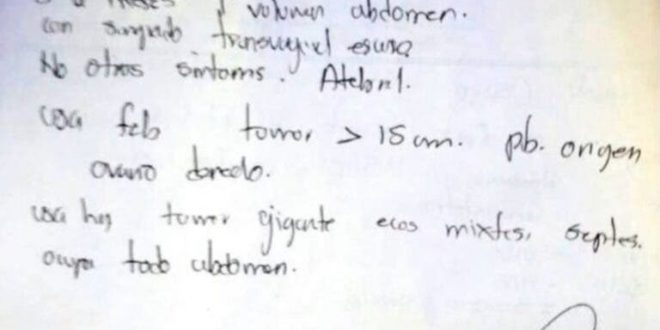 volumen abdomen.
con sangrado transvaginal escaso
No otros sintomas.
usa feb tomor > 15 cm. pb. origen
ovario
usa hoy tumor gigante ecos mixtos, septos.
ocupa todo abdomen.